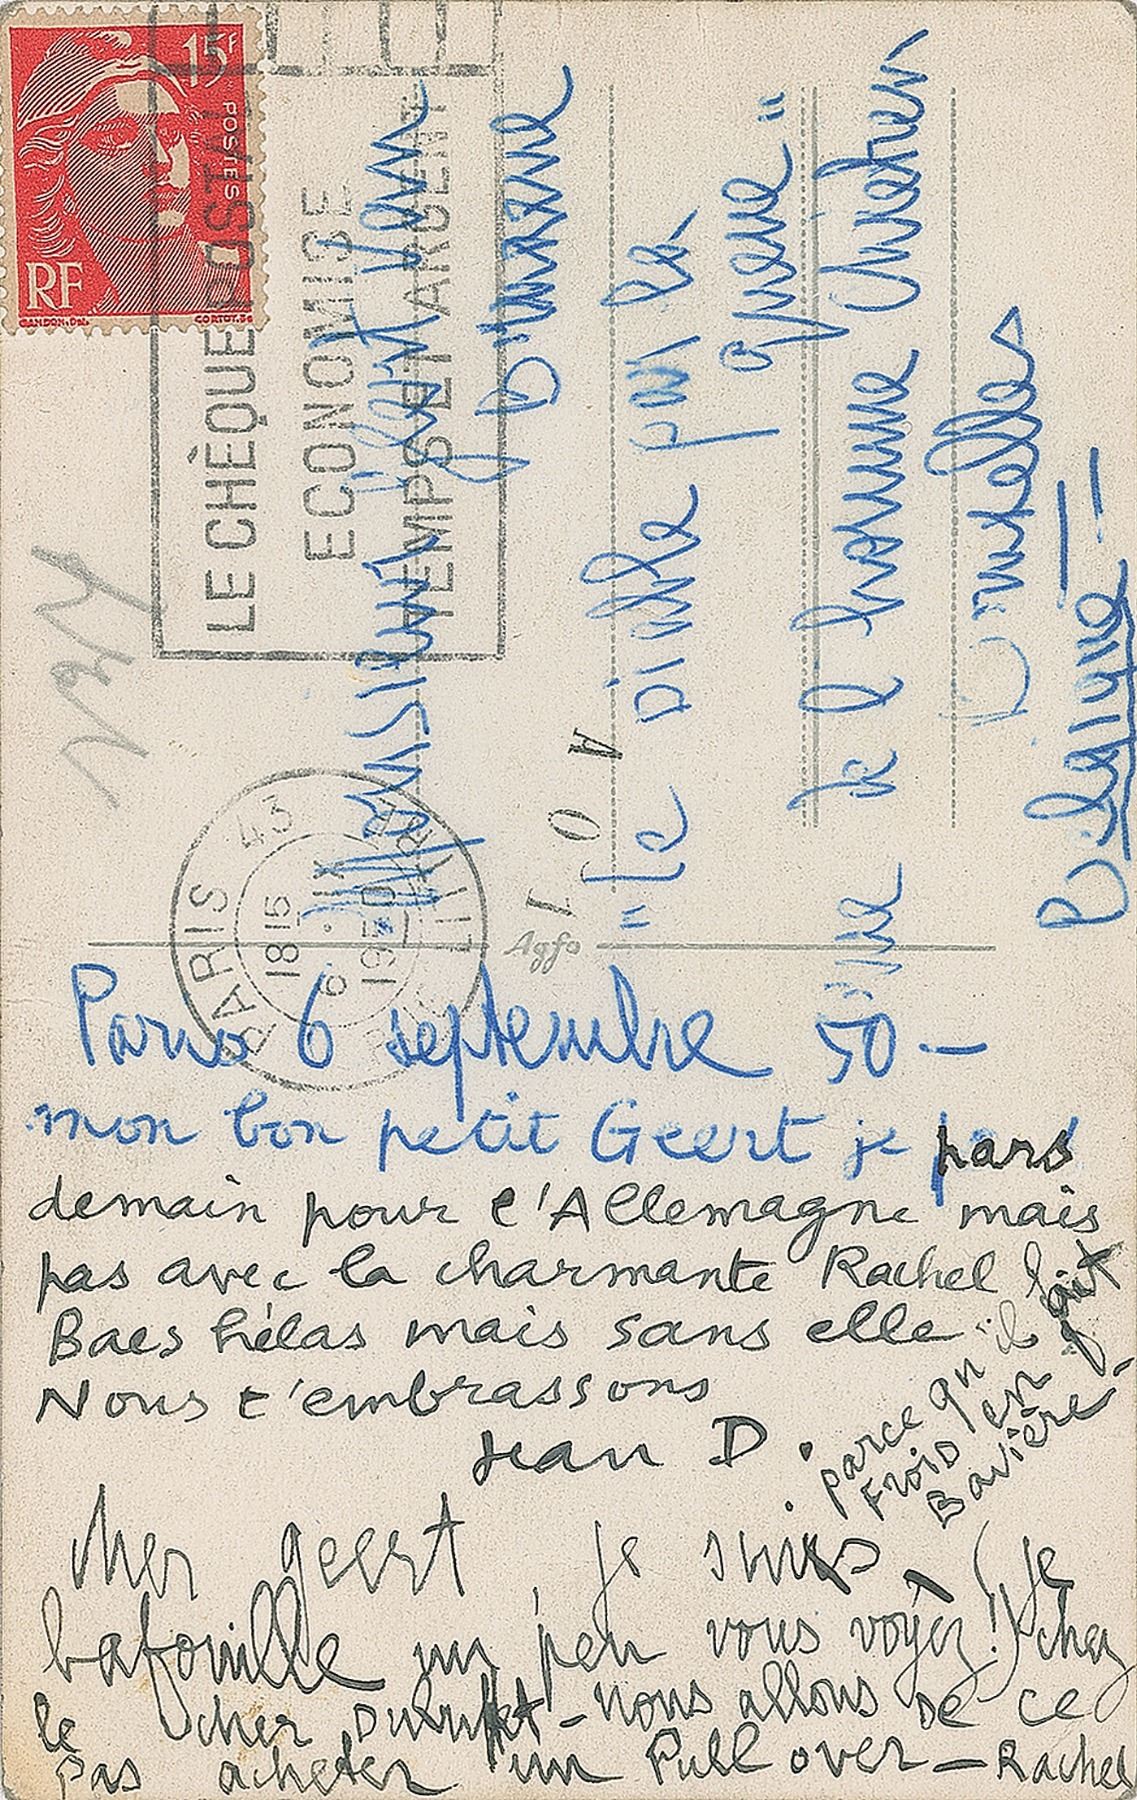 15f
POSTES
RF
GANDON.DEL
CORTOT.SC
LE CHÈQUE POSTAL
ECONOMISE
TEMPS ET ARGENT
PARIS 43
18 15
6 · IX
Monsieur Geert Van
Bruaene
"Le Diable par la
queue"
rue de l'homme Chrétien
Bruxelles
Belgique
Agfa
Paris 6 septembre 50 —
mon bon petit Geert je pars
demain pour l'Allemagne mais
pas avec la charmante Rachel
Baes hélas mais sans elle
Nous t'embrassons
Jean D.
parce qu'il fait
froid en
Bavière
Cher geert, je suis
bafouille un peu vous voyez!) chez
le cher Dubuffet - nous allons de ce
pas acheter un Pull over — Rachel